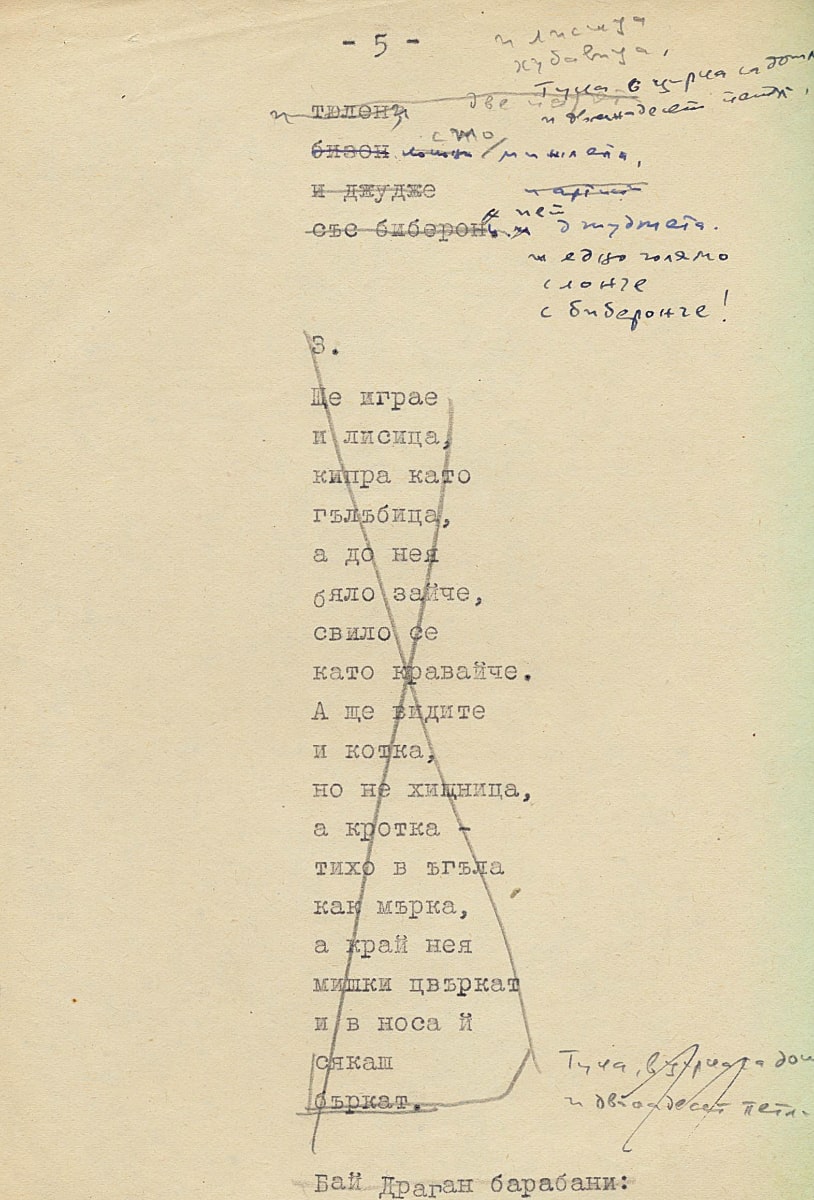 - 5 -
и лисица
хубавица,
Тука в цирка са дошл
и дванадесет петл
две
и тюлен,
сто
бизон / минлета,
и джудже
със биберон. и пет джуджета.
и едно голямо
слонче
с биберонче!
3.
Ще играе
и лисица,
кипра като
гълъбица,
а до нея
бяло зайче,
свило се
като кравайче.
А ще видите
и котка,
но не хищница,
а кротка -
тихо в ъгъла
как мърка,
а край нея
мишки цвъркат
и в носа й
сякаш
бъркат.
Тука, в цирка са дош
и дванадесет петл
Бай Драган барабани: